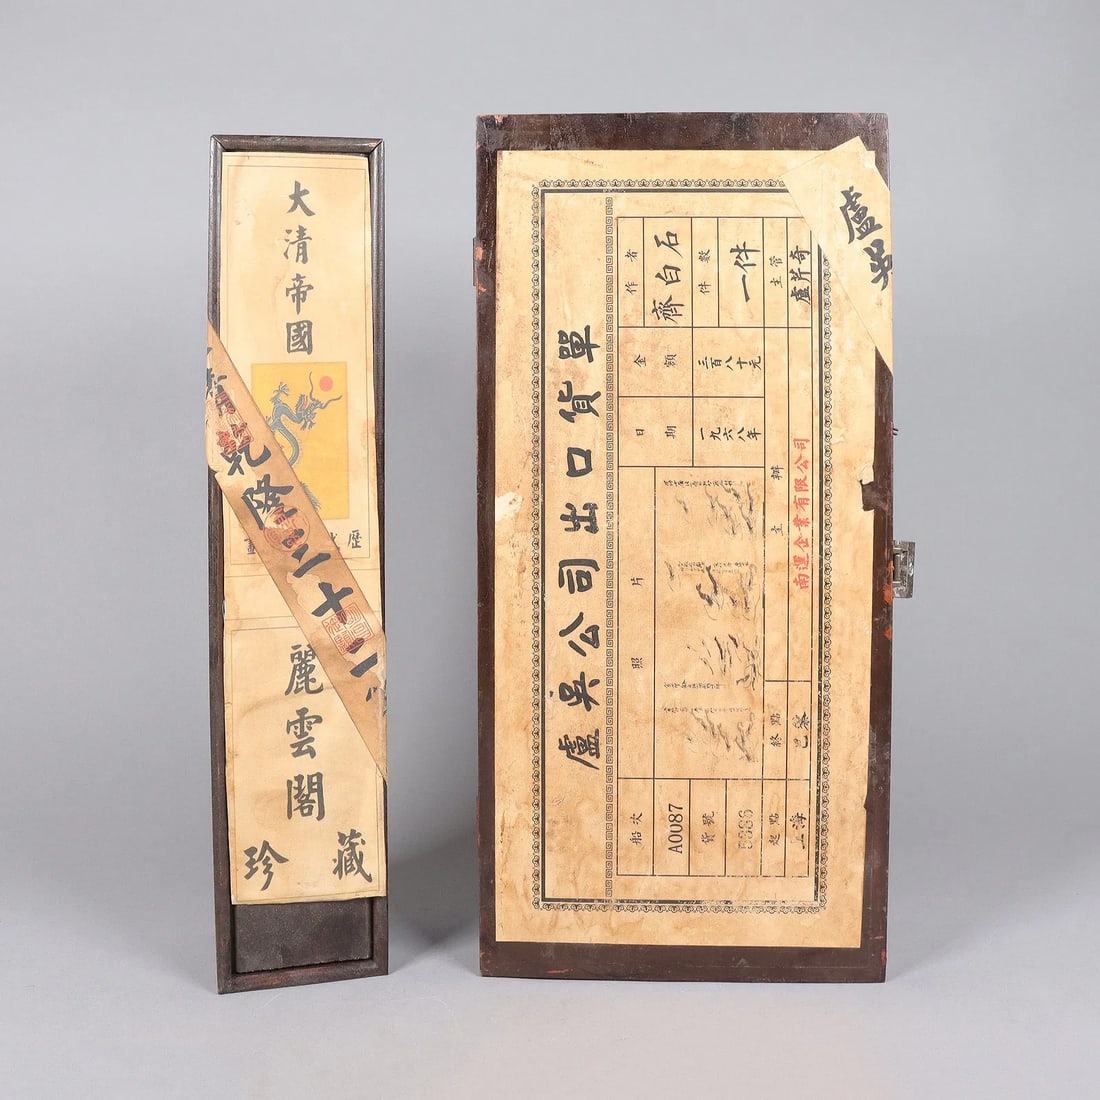 大清帝國
乾隆三十二
麗雲閣
珍藏
盧吳公司出口貨單
盧吳
船次
A0087
貨號
照片
日期
一九六八年
金額
三百八十元
作者
齊白石
件數
一件
起點
上海
終點
巴黎
主辦
南運企業有限公司
主管
盧芹奇